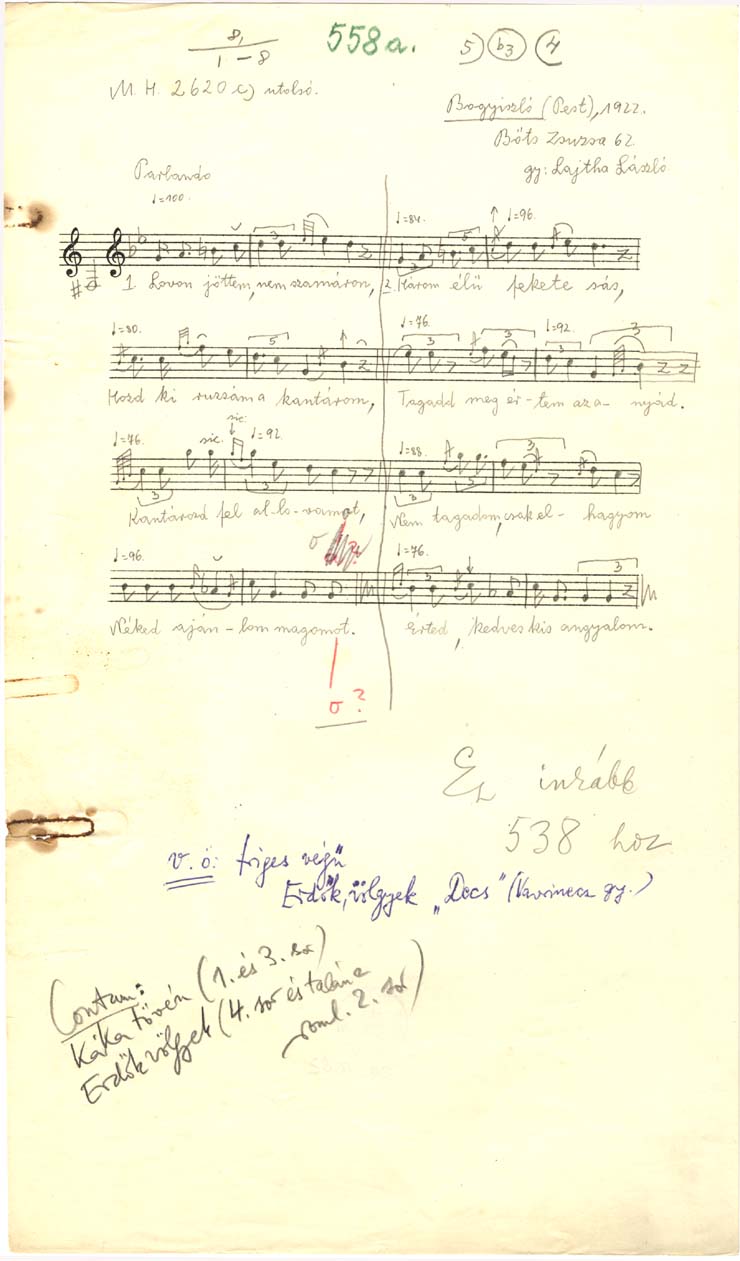 8,
1 – 8
558a.
5 b3 4
M. H. 2620 c) utolsó.
Bogyiszló (Pest), 1922.
Bőts Zsuzsa 62.
gy: Lajtha László
Parlando
♩=100. ♩=84. ♩=96.
1. Lovon jöttem, nem szamáron, 2. Három élű fekete sás,
♩=80. 5 ♩=76. 3 3 ♩=92. 3
Hozd ki ruzsám a kantárom, Tagadd meg ér-tem az a- nyád.
♩=76. sic. sic. ♩=92. ♩=88.
Kantározd fel al-lo-vamot, Nem tagadom, csak el- hagyom
♩=96. ♩=76.
Néked aján-lom magomot. Érted, kedves kis angyalom.
σ?
Ez inkább
538 hoz
v. ö: friges végű
Erdők, völgyek "Decs" (Vavrinecz gy.)
Contam:
Káka tövén (1. és 3. sor)
Erdők völgyek (4. sor és talán a
roml. 2. sor)